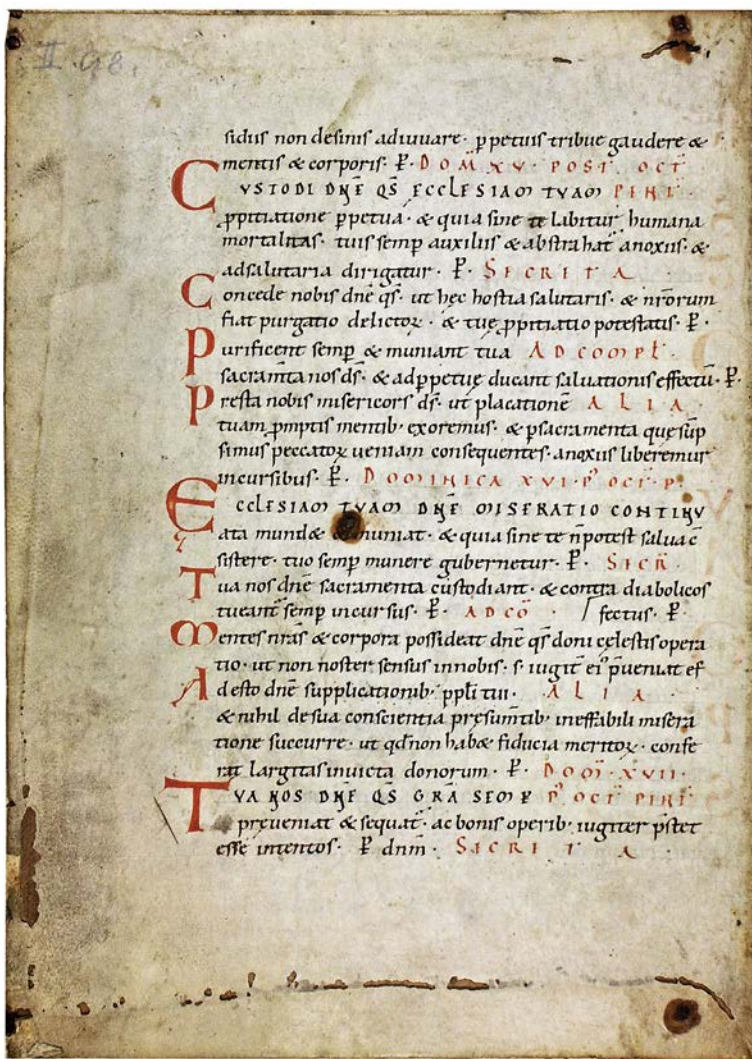 II 98.
sidiis non desinis adiuuare· ꝑpetuis tribue gaudere &
mentis & corporis· P̶· DOM̄ XV· POST· OCT̄
CUSTODI DN̄E QS̄ ECCLESIAM TUAM PENT̄·
ꝓpitiatione ꝑpetua· & quia sine te labitur humana
mortalitas· tuis semꝑ auxiliis & abstrahat̄ anoxiis· &
adsalutaria dirigatur· P̶· SECRETA
Concede nobis dn̄e qs̄· ut hęc hostia salutaris· & nr̄orum
fiat purgatio delictoꝝ· & tuę ꝓpitiatio potestatis· P̶·
Purificent semꝑ & muniant tua AD COMPL̄·
sacram̄ta nos ds̄· & adꝑpetuę ducant saluationis effectū· P̶·
Presta nobis misericors ds̄· ut placationē ALIA·
tuam ꝓmptis mentib· exoremus· & ꝑsacramenta quę sūp
simus peccatoꝝ ueniam consequentes· anoxiis liberemur
incursibus· P̶· DOMINICA XVI· P̊ OCT̄· P·
ECCLESIAM TUAM DN̄E MISERATIO CONTINU
ata mund& & muniat· & quia sine te n̄potest salua c̄
sistere· tuo semꝑ munere gubernetur· P̶· SECR̄
Tua nos dn̄e sacramenta custodiant· & contra diabolicos
tueant̄ semꝑ incursus· P̶· AD CŌ· fectus· P̶·
Mentes nr̄as & corpora possideat dn̄e qs̄ doni cęlestis opera
tio· ut non noster sensus innobis· s· iugit̄ ei᾽ p̄ueniat ef
Adesto dn̄e supplicationib· ppl̄i tui· ALIA·
& nihil desua conscientia presum̄tib· ineffabili misera
tione succurre· ut qd̄non hab& fiducia meritoꝝ· confe
rat largitas inuicta donorum· P̶· DOM̄· XVII·
TUA NOS DN̄E QS̄ GR̄A SEMP̄ P̊ OCT̄ PENT̄
pręueniat & sequat̄· ac bonis operib· iugiter p̄stet
esse intentos· P̶ dnm̄· SECRETA·